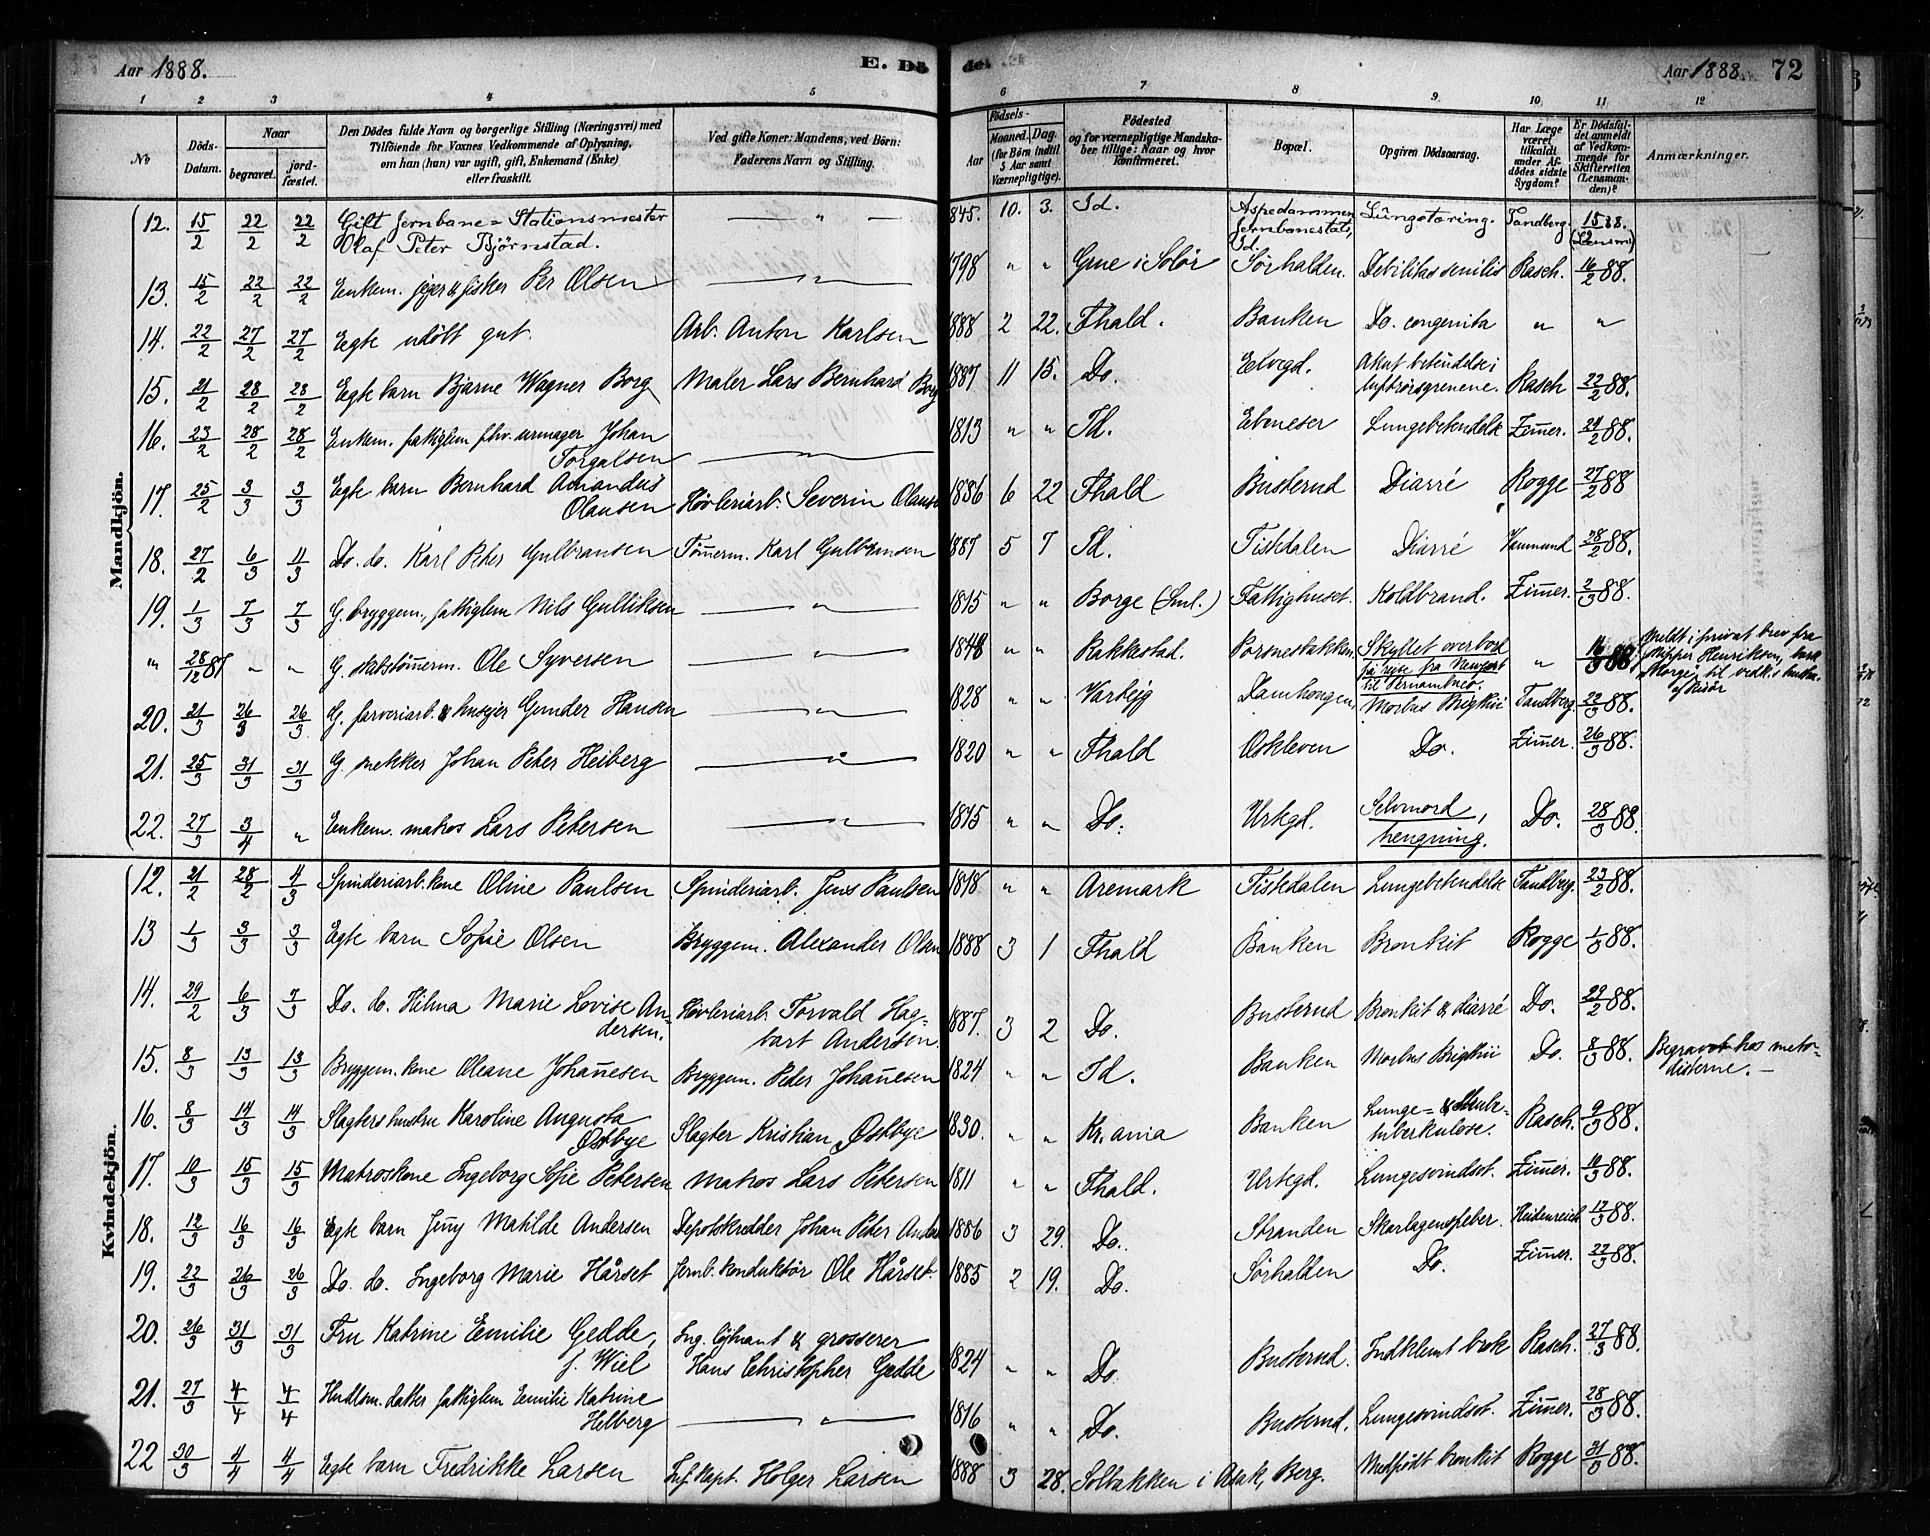 Aar 1888. E. Dö
de. Aar 1888. 72
1 2 3 4 5 6 7 8 9 10 11 12
No
Döds-Datum.
Naar
begravet.
jord-fæstet.
Den Dödes fulde Navn og borgerlige Stilling (Næringsvei) med
Tilföiende for Voxnes Vedkommende af Oplysning,
om han (hun) var ugift, gift, Enkemand (Enke)
eller fraskilt.
Ved gifte Koner: Mandens, ved Börn:
Faderens Navn og Stilling.
Födsels-
Aar
Maaned. Dag.
(for Børn indtil
5 Aar samt
Værnepligtige).
Födested
og for værnepligtige Mandska-
ber tillige: Naar og hvor
konfirmeret.
Bopæl.
Opgiven Dödsaarsag.
Har Læge
været
tilkaldt
under Af-
dödes sidste
Sygdom?
Er Dödsfal-
det anmeldt
af Vedkom-
mende for
Skifteretten
(Lensman-
den)?
Anmærkninger.
Mandkjön.
12. 15/2 22/2 22/2 Gift Jernbane=Stationsmester — " — 845. 10. 3. Id. Aspedammen Lungetæring. Tandberg. 15/2 88.
Olaf Peter Björnstad. Jernbanestats, Id. (Lensm)
13. 15/2 22/2 22/2 Enkem. jeger & fisker Per Olsen — " — 1798 " " Grue i Solör Sörhalden. Debilitas senilis Rasch. 16/2 88.
14. 22/2 27/2 27/2 Egte udöbt gut. Arb. Anton Karlsen 1888 2 22. Fhald. Banken Do. congenita " "
15. 21/2 28/2 28/2 Egte barn Bjarne Wagner Borg Maler Lars Bernhard Borg 1887 11 15. Do. Eelvegd. Akut betændelse i
luftrörsgrenene. Rasch 22/2 88.
16. 23/2 28/2 28/2 Enkem. fattiglem fhv. urmager Johan
Torgalsen — " — 1813 " " Id. Ebeneser Lungebetendelse Zimer. 24/2 88.
17. 25/2 3/3 3/3 Egte barn Bernhard Amandus
Olausen Hövleriarb. Severin Olausen 1886 6 22 Fhald Busterud Diarré Rogge 27/2 88
18. 27/2 6/3 11/3 Do. do. Karl Peter Gulbransen Tömerm. Karl Gulbransen 1887 5 7 Id. Tistedalen Diarré 28/2 88.
19. 1/3 7/3 7/3 G. bryggem., fattiglem Nils Gulliksen — " — 1815 " " Borge (Sml.) Fattighuset. Koldbrand. Zimer. 2/3 88.
" 28/12 87 " " G. skibstömerm. Ole Syversen 1848 " " Rakkestad. Porsnesbakken. Skyllet overbord
på reise fra Newport
til Pernambuco. " 16/3 88 Meldt i privat brev fra
skipper Henriksen, bark
"Norge", til
20. 21/3 26/3 26/3 G. farveriarb. & huseier Gunder Hansen — " — 1828 " " Varteig Damhaugen, Morbus Brigthii Tandberg. 22/3 88.
21. 25/3 31/3 31/3 G. snekker Johan Peter Heiberg — " — 1820 " " Fhald Oskleven Do. Zimer. 26/3 88.
22. 27/3 3/4 " Enkem. matros Lars Petersen — " — 1815 " " Do. Urtegd. Selvmord,
hengning. Do. 28/3 88.
Kvindekjön.
12. 21/2 28/2 4/3 Spinderiarb.kone Oline Paulsen Spinderiarb. Jens Paulsen 1818 " " Aremark Tistedalen Lungebetendelse Tandberg. 23/2 88.
13 1/3 3/3 3/3 Egte barn Sofie Olsen Bryggem. Alexander Olsen 1888 3 1 Fhald Banken Bronkit Rogge 1/3 88.
14. 29/2 6/3 7/3 Do. do. Hilma Marie Lovise An=
dersen. Hövleriarb. Torvald Hag=
bart Andersen. 1887. 3 2 Do. Busterud Bronkit & diarré Do. 29/2 88.
15. 8/3 13/3 13/3 Bryggem. kone Oleane Johañesen Bryggem. Peter Johañesen 1824 " " Id. Banken Morbus Brigthii Do. 8/3 88. Begravet hos meto-
disterne.—
16. 8/3 14/3 14/3 Slagters hustru Karoline Augusta
Östbye Slagter Kristian Östbye 1830. " " Kr.ania Banken Lunge=
tuberkulose. Rasch. 9/3 88.
17. 10/3 15/3 15/3 Matroskone Ingeborg Sofie Petersen Matros Lars Petersen 1811 " " Fhald. Urtegd. Lungesvindsot. Zimer. 10/3 88.
18. 12/3 16/3 16/3 Egte barn Jeñy Matilde Andersen Depotskredder Johan Peter Anders 1886 3 29. Do. Stranden Skarlagensfeber. Heidenreich 12/3 88.
19. 22/3 26/3 26/3 Do. do. Ingeborg Marie Hårset Jernb. konduktör Ole Hårset. 1885 2 19. Do. Sörhalden Do. Zimer. 22/3 88.
20. 26/3 31/3 31/3 Fru Katrine Emilie Gedde,
f. Wiel Ing. löjtnant & grosserer
Hans Christopher Gedde 1824 " " Do. Busterud. Indklemt brok Rasch. 27/3 88.
21. 27/3 4/4 4/4 datter fattiglem Emilie Katrine
Helberg — " — 1816 " " Do. Busterud. Lungesvindsot. Zimer. 28/3 88.
22 30/3 4/4 4/4 Egte barn Fredrikke Larsen Inf. kapt. Holger Larsen 1888 3 28. Solbakken i Asak, Berg. Medfödt bronkit Rogge 31/3 88.